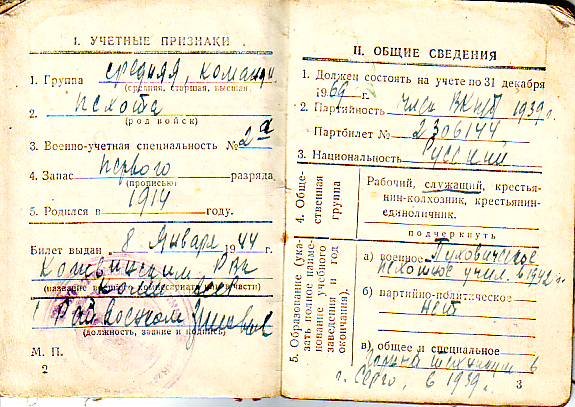 I. УЧЕТНЫЕ ПРИЗНАКИ
1. Группа средняя, команд
(средняя, старшая, высшая)
2. пехота
(род войск)
3. Военно-учетная специальность № 2а
4. Запас первого разряда
(прописью)
5. Родился в 1914 году.
Билет выдан 8 Января 1944 г.
РВК
(название военного комиссариата или части)
Райвоенком
(должность, звание и подпись)
М. П.
2
II. ОБЩИЕ СВЕДЕНИЯ
1. Должен состоять на учете по 31 декабря
1969 г.
2. Партийность член ВКПб 1939 г.
Партбилет № 2306144
3. Национальность Русский
4. Общественная группа
Рабочий, служащий, крестьянин-колхозник, крестьянин-
единоличник.
подчеркнуть
5. Образование (указать полное наименование учебного заведения и год окончания).
а) военное Пуховическое
пехотное учил. в 1942 г.
б) партийно-политическое
нет
в) общее и специальное
в
г. Серго, в 1939 г.
3